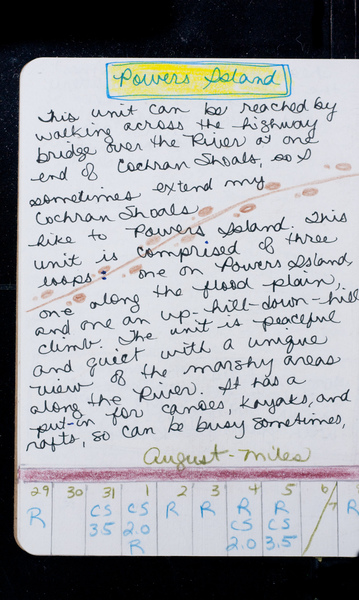 Powers Island
This unit can be reached by
walking across the highway
bridge over the River at one
end of Cochran Shoals, so I
sometimes extend my
Cochran Shoals
hike to Powers Island. This
unit is comprised of three
loops: one on Powers Island
one along the flood plain,
and one an up-hill-down-hill
climb. The unit is peaceful
and quiet with a unique
view of the marshy areas
along the River. It has a
put-in for canoes, kayaks, and
rafts, so can be busy sometimes,
August-miles
29 30 31 1 2 3 4 5 6 7
R CS CS R R R R R
3.5 2.0 CS CS
R 2.0 3.5